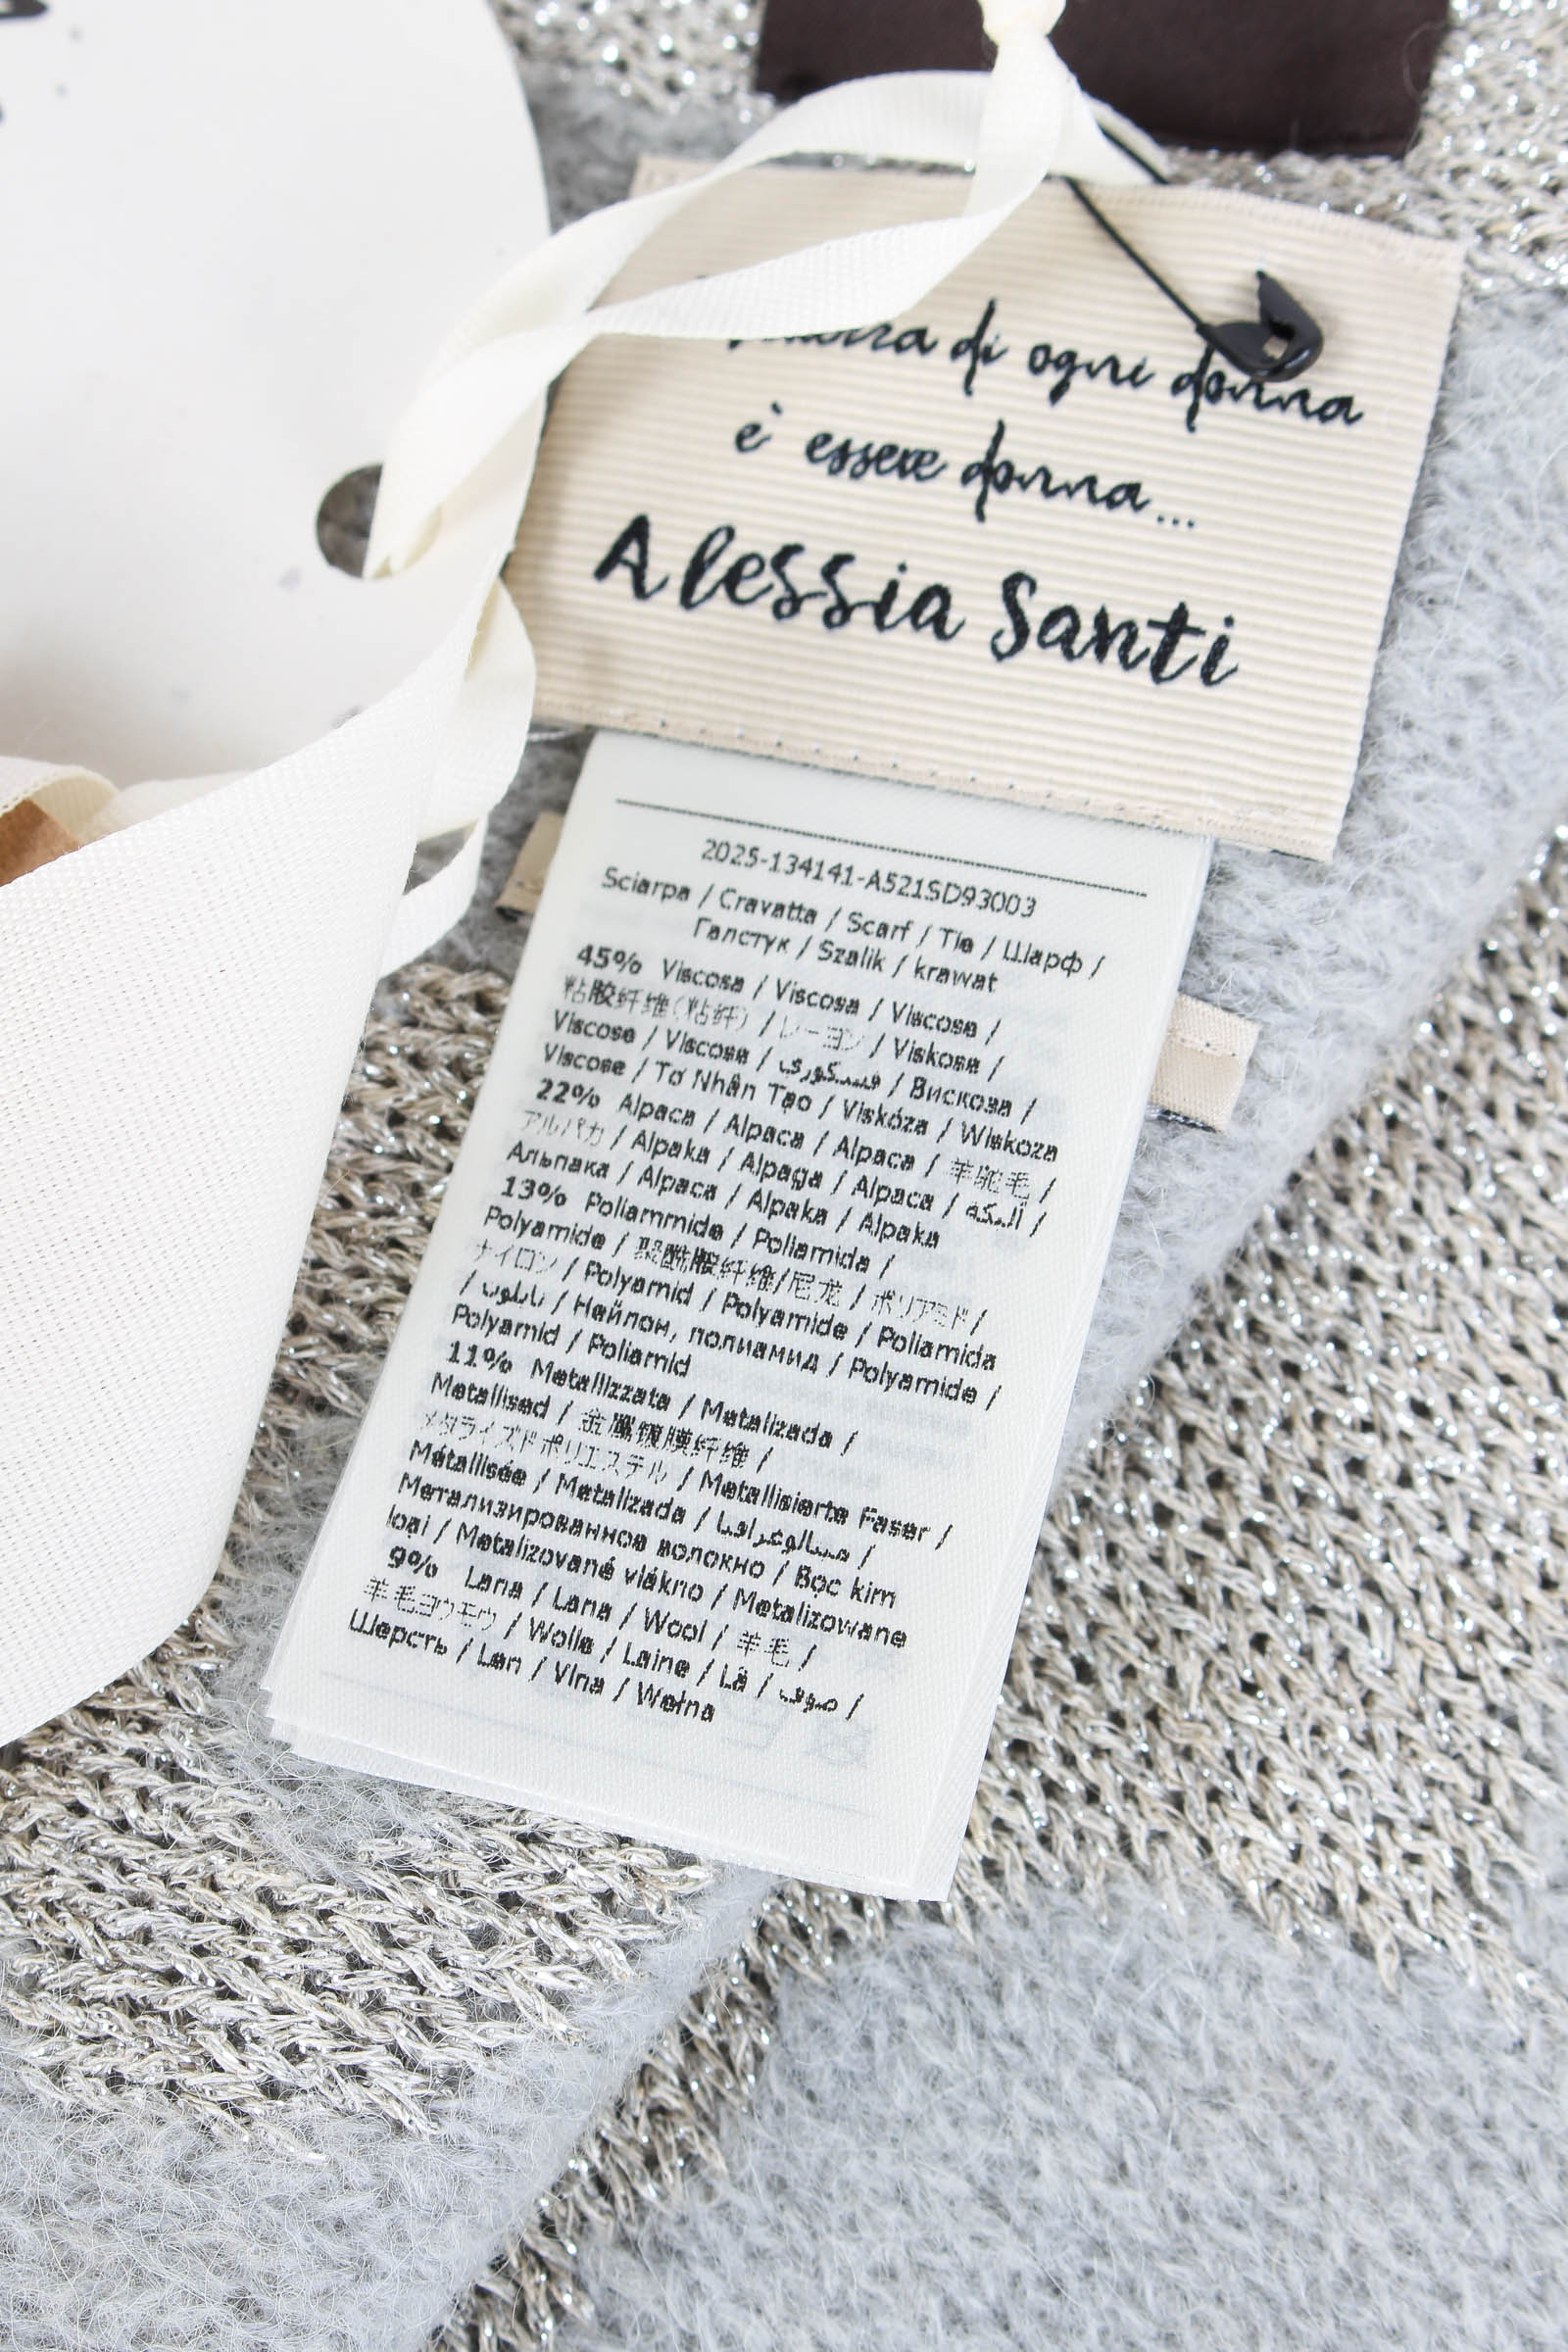 di ogni donna
è essere donna...
Alessia Santi
2025-134141-A521SD93003
Sciarpa / Cravatta / Scarf / Tie / Шарф /
Галстук / Szalik / krawat
45% Viscosa / Viscosa / Viscose /
粘胶纤维(粘纤) / レーヨン / Viskose /
Viscose / Viscose / فيسكوزي / Вискоза /
Viscose / Tơ Nhân Tạo / Viskóza / Wiskoza
22% Alpaca / Alpaca / Alpaca / 羊驼毛 /
アルパカ / Alpaka / Alpaga / Alpaca / ألبكة /
Альпака / Alpaca / Alpaka / Alpaka
13% Poliammide / Poliamida /
Polyamide / 聚酰胺纤维/尼龙 / ポリアミド /
ナイロン / Polyamid / Polyamide / Poliamida
/ نايلون / Найлон, полиамид / Polyamide /
Polyamid / Poliamid
11% Metallizzata / Metalizada /
Metallised / 金属镀膜纤维 /
メタライズドポリエステル / Metallisierte Faser /
Métallisée / Metalizada / /
Метализированное волокно / Bọc kim
loại / Metalizované vlákno / Metalizowane
9% Lana / Lana / Wool / 羊毛 /
羊毛ヨウモウ / Wolle / Laine / Lã / صوف /
Шерсть / Len / Vlna / Wełna